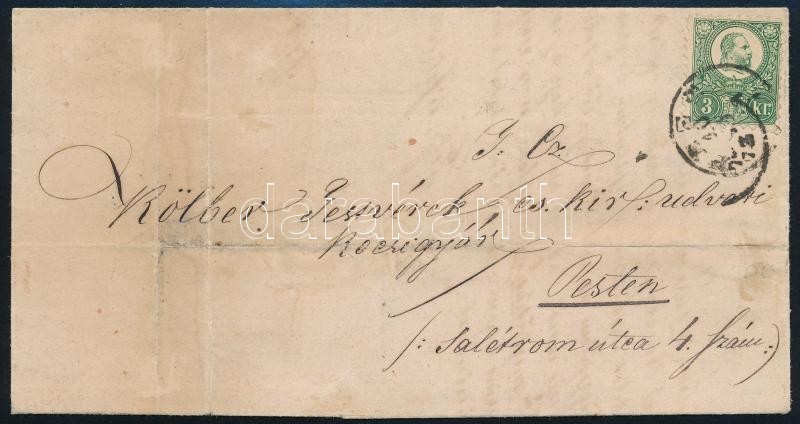 3 kr.
73
T. Cz.
Kölber Testvérek cs. kir: udvari
Kocsigyár
darabanth
Pesten
/: Salétrom útca 4. szám :)